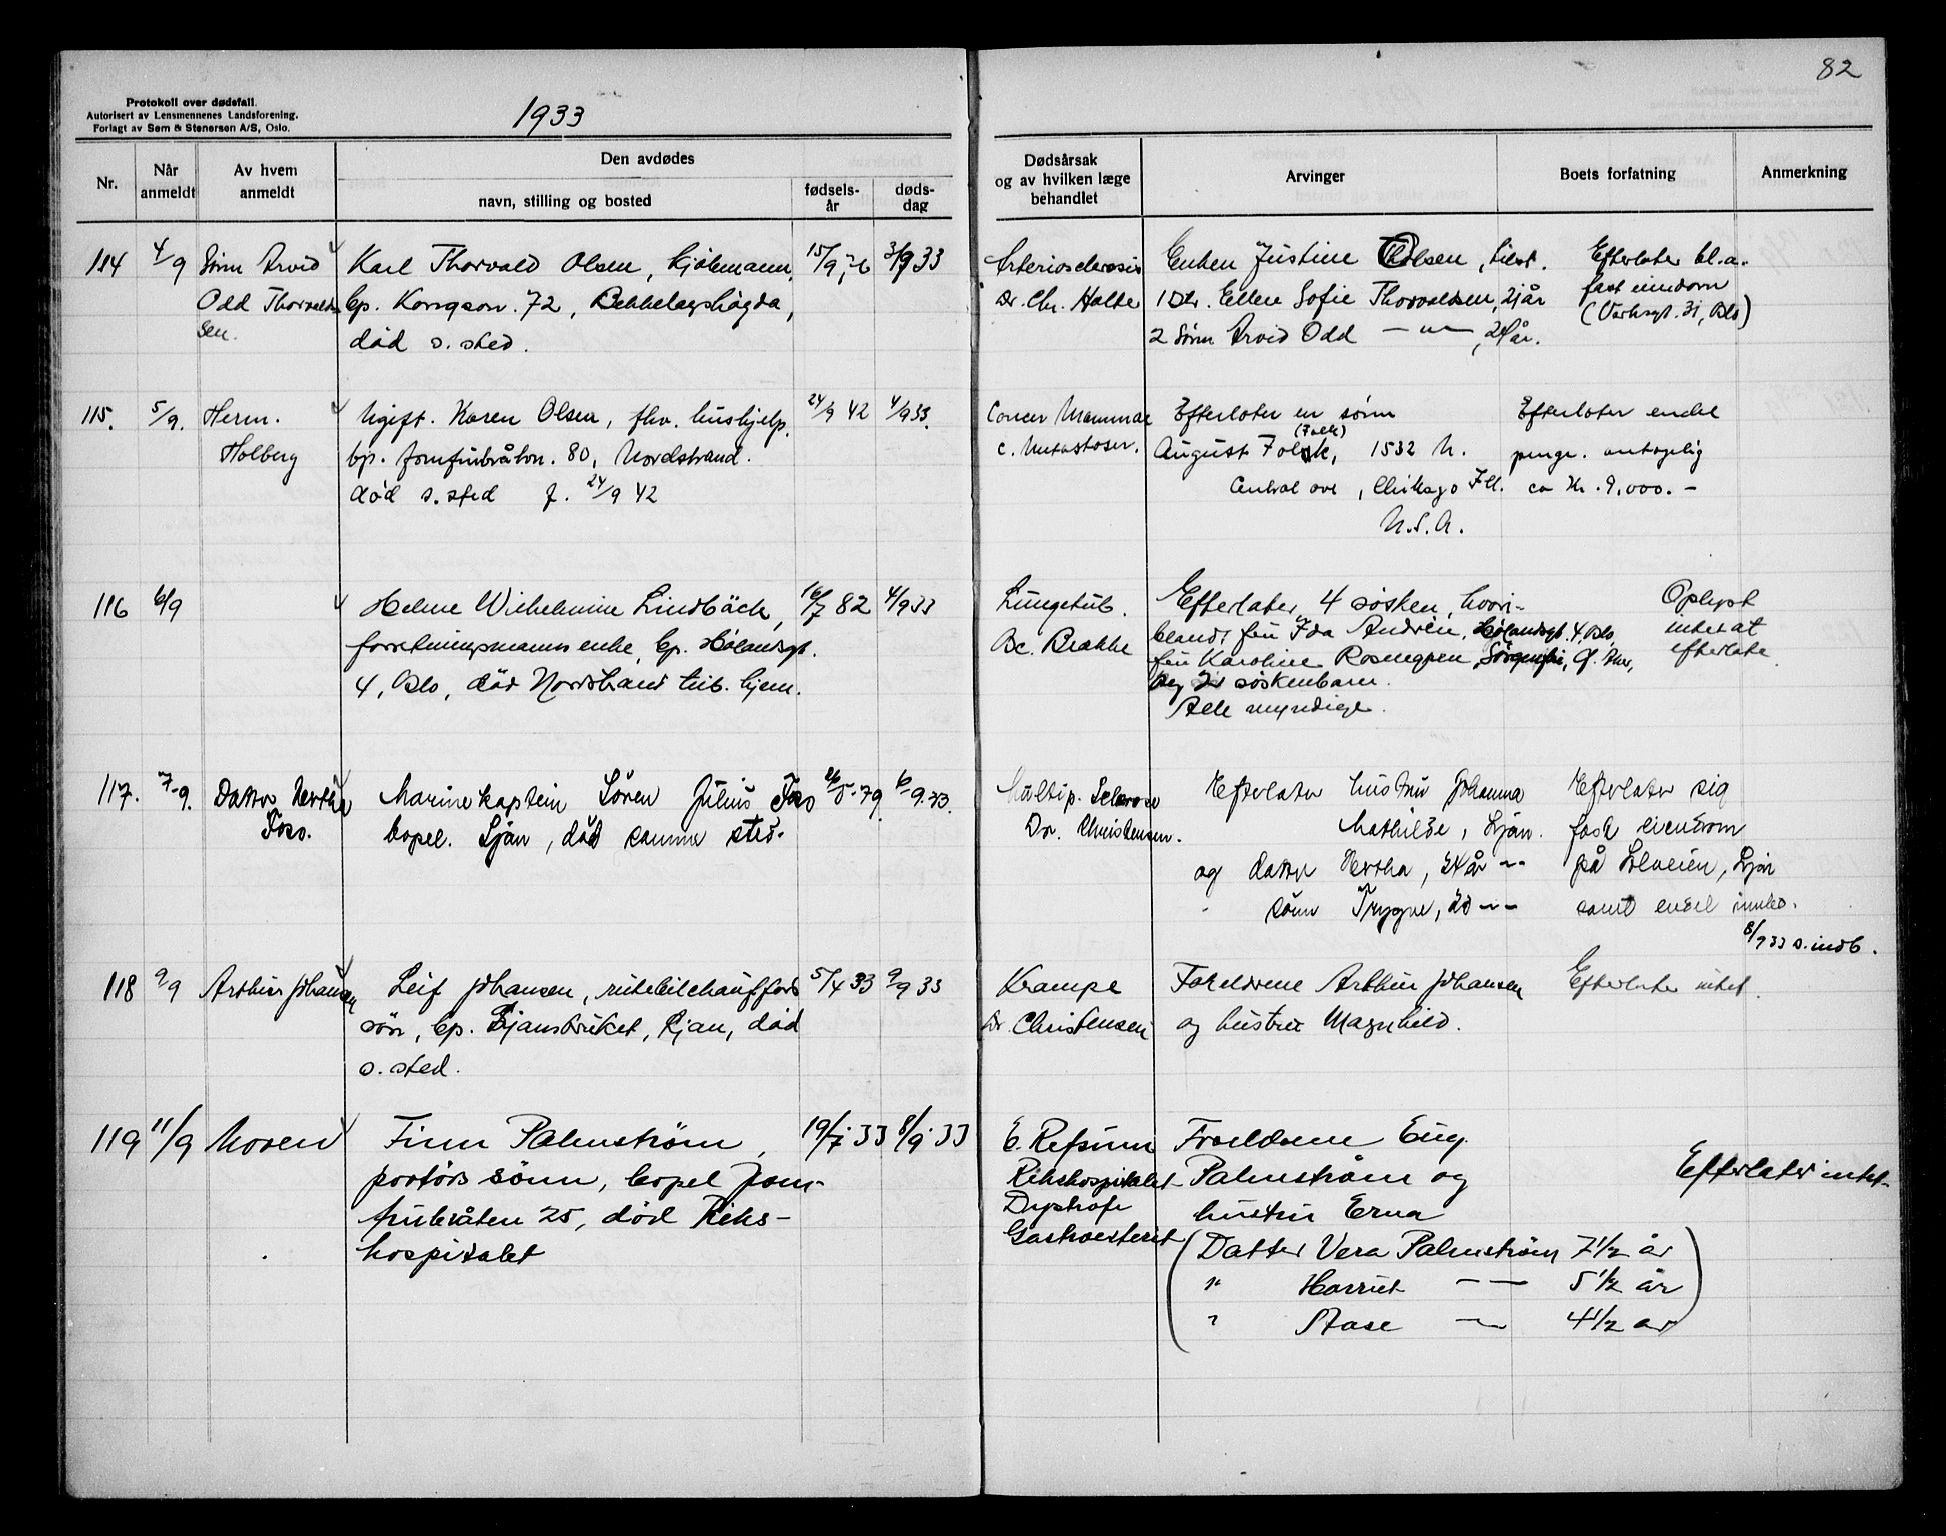 82
Protokoll over dødsfall.
Autorisert av Lensmennenes Landsforening.
Forlagt av Sem & Stenersen A/S, Oslo.
1933
Nr.
Når anmeldt
Av hvem anmeldt
Den avdødes
navn, stilling og bosted
fødsels-år
døds-dag
Dødsårsak og av hvilken læge behandlet
Arvinger
Boets forfatning
Anmerkning
114 4/9 Sønn Arvid Karl Thorvald Olsen, kjøbmann, 15/9 76 3/9 33 Arteriosclerosis Enken Justine Olsen, Efterlater bl.a.
Odd Thorvald- bp. Kongsvn. 72, Bekkelagshøgda, Dr. Chr. Holte 1 Dtr. Ellen Sofie Thorvaldsen, 21 år fast eiendom
sen. død s. sted. 2 Sønn Arvid Odd — " — , 24 år. 31, Oslo)
115. 5/9. Herm. Ugift. Karen Olsen, fhv. hushjelp. 24/9 42 4/9 33. Cancer Mammae Efterlater en sønn Efterlater endel
Holberg bp. Jomfrubråtvn. 80, Nordstrand. c. Metastaser. August Folk, (Falk) 1532 N. penge. antagelig
død s. sted f. 24/9 42 Central ave, Chikago Ill. ca kr. 9.000.-
U.S.A.
116 6/9 Helene Wilhelmine Lindbäck, 16/7 82 4/9 33 Lungetub. Efterlater 4 søsken, hvori- Oplyst
forretningsmanns enke, bp. Hølandsgt. Dr. Brakke blandt fru Ida Andrèn, Hølandsgt. 4, Oslo, intet at
4, Oslo, død Nordstrand tub. hjem. fru Karoline efterlate.
og søskenbarn.
Alle myndige.
117. 7-9. Datter Hertha Marinekaptein Sören Julius Foso 26/5-79 6-9.33. Multip. Sclerose Efterlater hustru Johanna Efterlater sig
Foso. bopel. Ljan, död samme sted. Dr. Christensen. Mathilde, Ljan. fast eiendom
og datter Hertha, 24 år -- på Solveien, Ljan
" sönn Trygve, 20 -- samt endel innbo.
8/9 33 s. indb.
118 9/9 Arthur Johansen Leif Johansen, rutebilchaufførs 5/4 33 9/9 33 Krampe Foreldrene Arthur Johansen Efterlater intet.
sønn, bp. Ljansbruket, Ljan, død Dr. Christensen og hustru Magnhild.
s. sted.
119 11/9 Moren Finn Palmstrøm, 19/7 33 8/9 33 E. Refsum Foreldrene Eug.
portørs sønn, bopel Jom- Rikshospitalet Palmstrøm og Efterlater intet-
frubråten 25, død Riks- Dystrofi hustru Erna
hospitalet Gastroenterit (Datter Vera Palmstrøm 7 1/2 år
" Harriet — — 5 1/2 år
" Aase — 4 1/2 år)